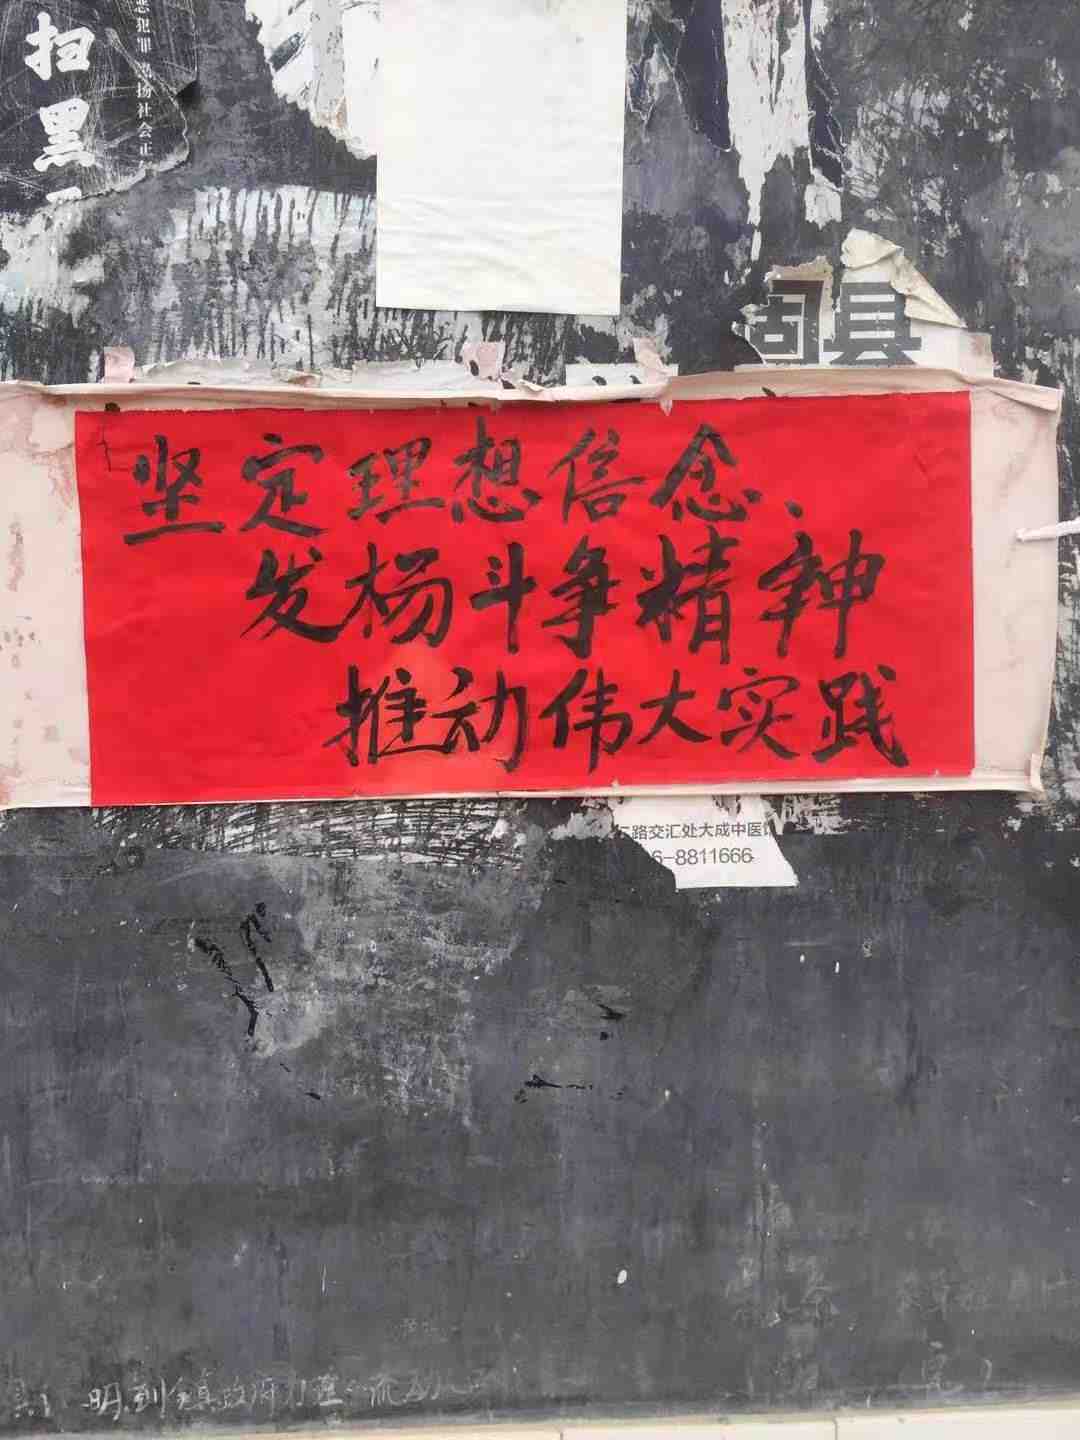 扫黑
恶犯罪 弘扬社会正
固县
坚定理想信念、
发杨斗争精神
推动伟大实践
路交汇处大成中医
6-8811666
明 到 镇政府